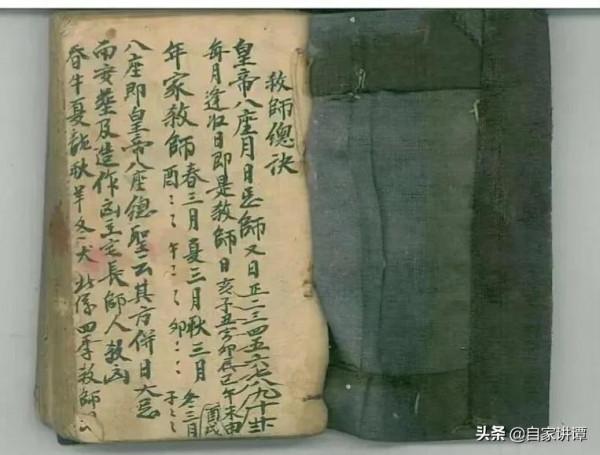 教師總诀
皇帝八座月日忌師又日正二三四五六七八九十
每月逢收日即是教師日亥子丑寅卯辰巳午未申酉戌
年家教師春三月夏三月秋三月冬三月
酉午卯子
八座即皇帝八座總聖云其方併日大忌
而安葬及造作凶主宅長師人教凶
春牛夏龍秋羊冬犬此係四季教師
头条 @自家讲谭